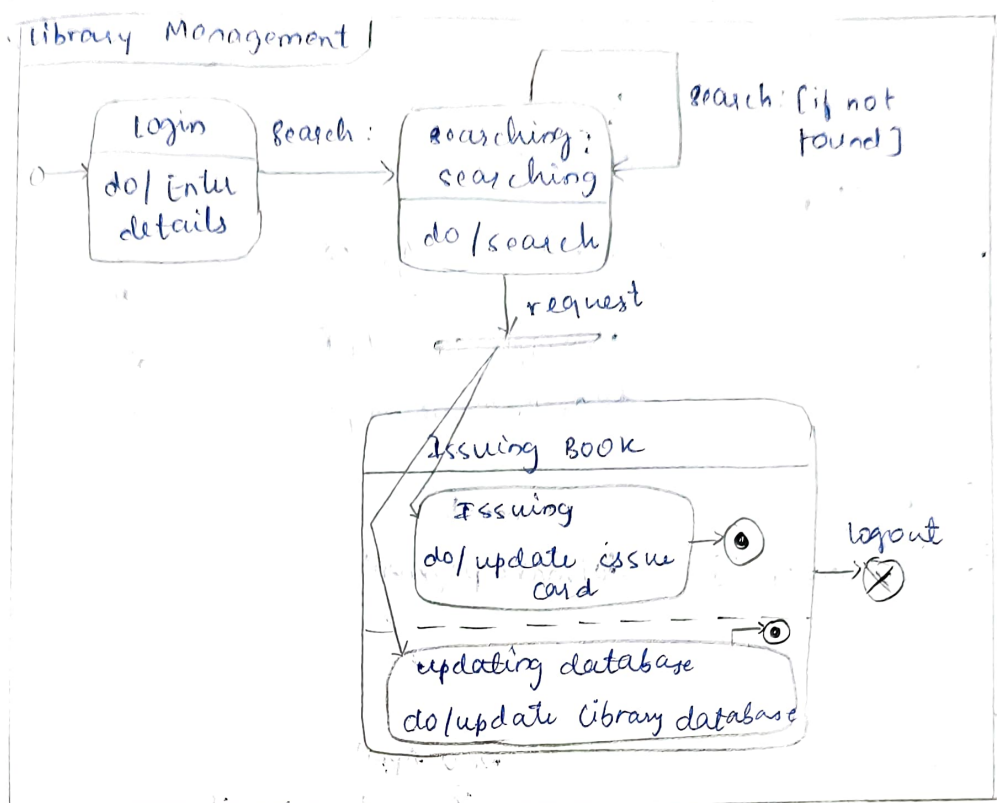 Library Management
Login
do/ Enter
details
search:
searching:
searching
do/search
search: [if not
found]
request
Issuing BOOK
Issuing
do/update issue
card
logout
updating database
do/update library database